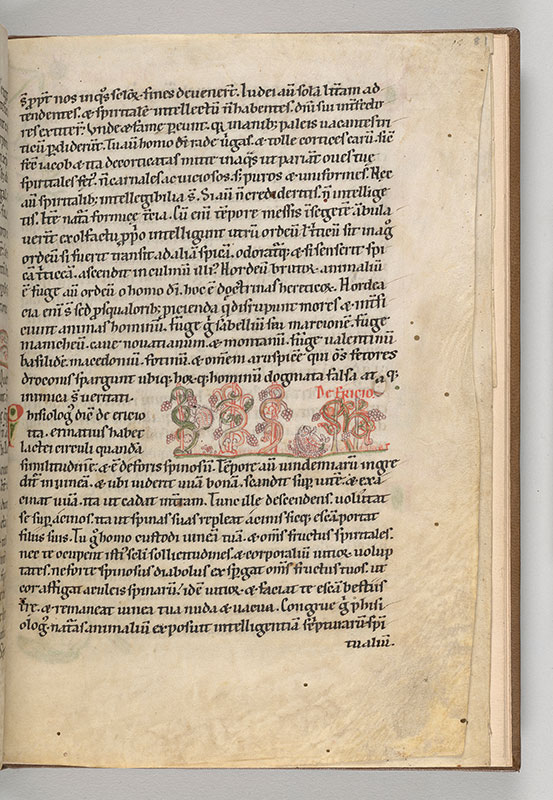 81
s̄ ꝓpt̄ nos in seculoꝝ fines deuener̄. Iudei aū solā lr̄am ad
tendentes. & spiritalē intellectū n̄ habentes.
Vnde & fame pereunt. q̇ inanib; paleis uacantes tri
ticū ꝑdiderūt. Tu aūt homo dī rade ꝟgas. & tolle cortices earū. sic
iacob & ita decorticatas mitte inaq̇s ut pariāt oues tue
spiritales n̄ carnales. ac uiciosos. s; puros & uniformes. Nec
aūt spiritalib; intellegibilia s̄. Si aūt n̄ credidertis. n̄ intellige
tis. natā formice Cū enī tēpore messis īsegete ābula
uerit exolfactu ꝓpo intelligunt utrū ordeū ł triticū sit
ordeū si fuerit transit ad aliā spicā. odoratq; & si senserit spi
cā triticeā. ascendit inculmū illi. Hordeū brutoꝝ animaliū
ē fuge aūt ordeū o homo dī. hoc ē doctrinas hereticoꝝ. Hordea
cia enī s̄ & sed ꝓsqualorib; ꝓicienda q̇ disrūpunt mores & int̄fi
ciunt animas hominū. fuge g̊ sabelliū siue marcionē. fuge
manicheū. caue nouatianum & montanū. fuge ualentinū
basilidē. macedoniū. fotinū. & om̄em arrii specie qui om̄s fetores
draconis spargunt ubiq; hoꝝ q; hominū dogmata falsa atq;
inimica s̄ ueritati. De Ericio.
Phisiologꝰ dicē de ericio
ita. ermatius habet
lactei circuli quandā
similitudinē. & ē deforis spinosū. Tēpore aūt uindemiarū ingre
dit̄ inuineā. & ubi uiderit uuā bonā. scandit suꝑ uitē. & exa
cinat uuā. ita ut cadat int̄ram. Tunc ille descendens. uolutat
se suꝑ acinos. ita ut spinas suas repleat acinis sicq; escā portat
filiis suis. Tu g̊ homo custodi uineā tuā. & om̄s fructus spiritales.
nec te occupent isti seculi sollicitudines. & corporaliū uitioꝝ uolup
tates. ne forte spinosus diabolus expgat om̄s fructus tuos. ut
cor affligat aculeis spinarū. idē uitioꝝ. & faciat te escā bestiis
t̄re. & remaneat uinea tua nuda & uacua. Congrue g̊ phisi
ologꝰ natās animaliū exposuit intelligentiā scripturarū spi
tualiū.